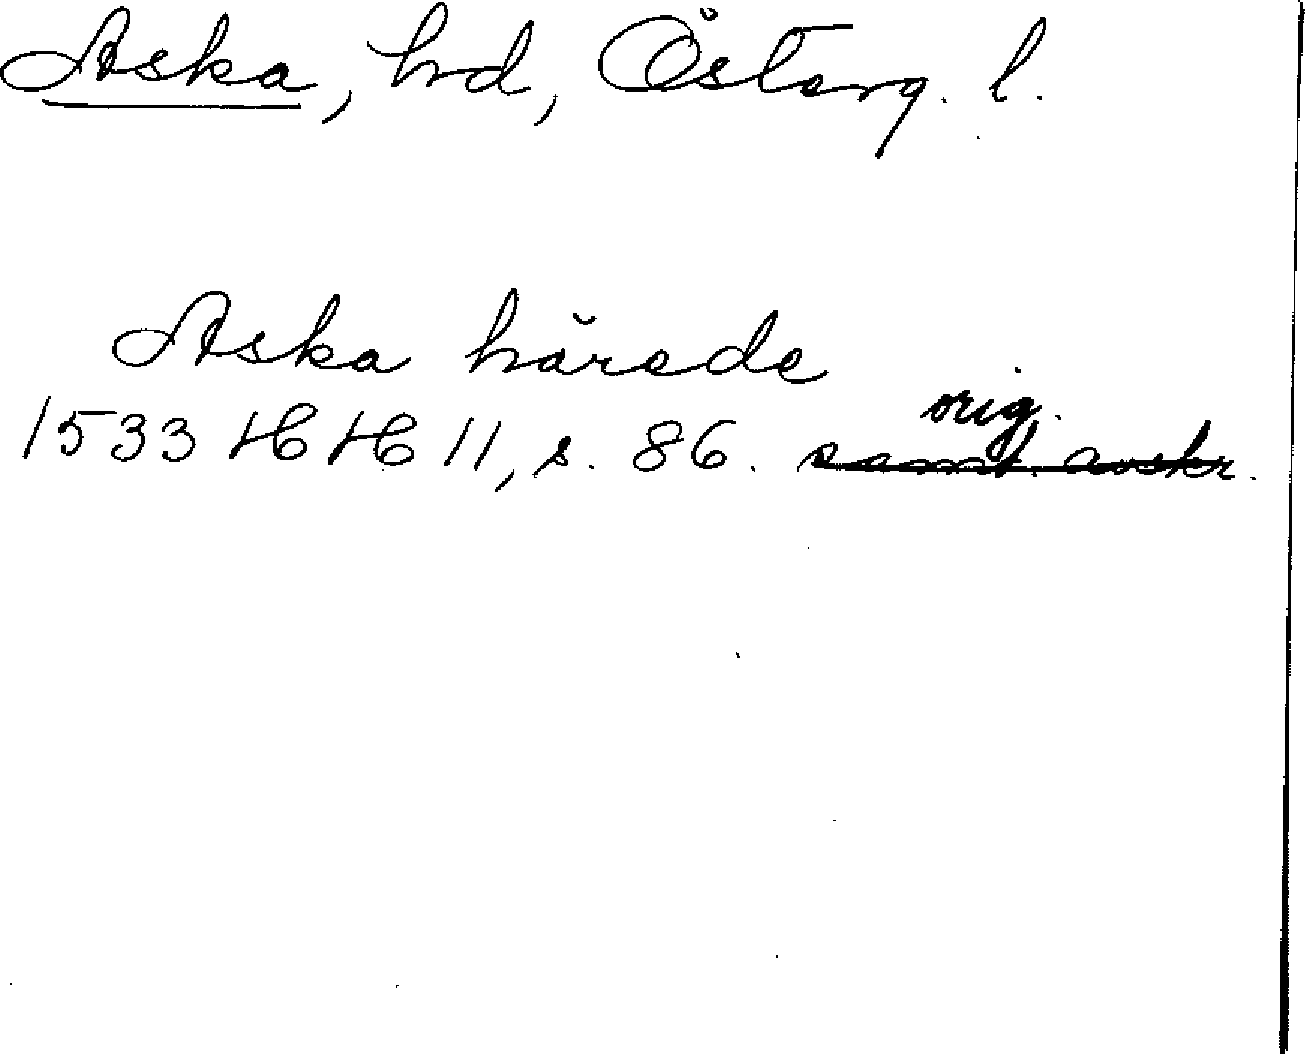 Aska, hd, Österg. l.
Aska härede
orig.
1533 HH 11, s. 86. samt. avskr.